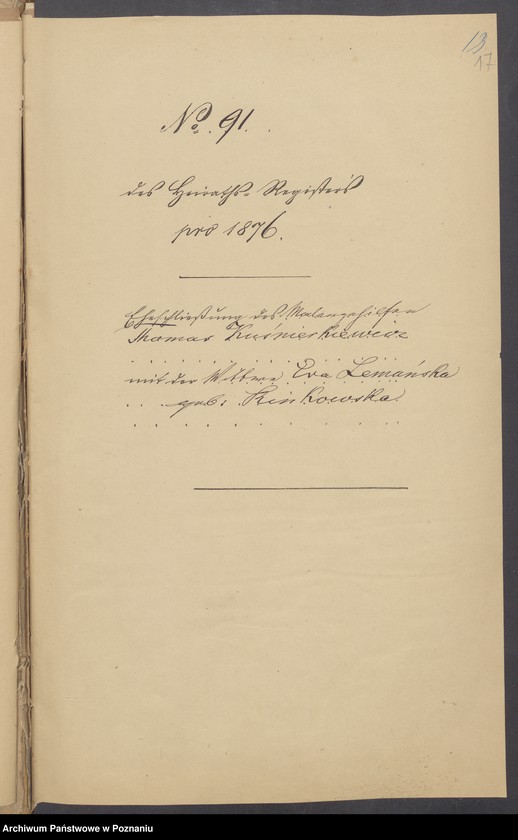 13
17
No. 91.
des Heiraths-Registers
pro 1876.
Eheschließung des Malergehilfen
Thomas Kuśnierkiewicz
mit der Wittwe Eva Lemańska
geb: Rinkowska.
Archiwum Państwowe w Poznaniu